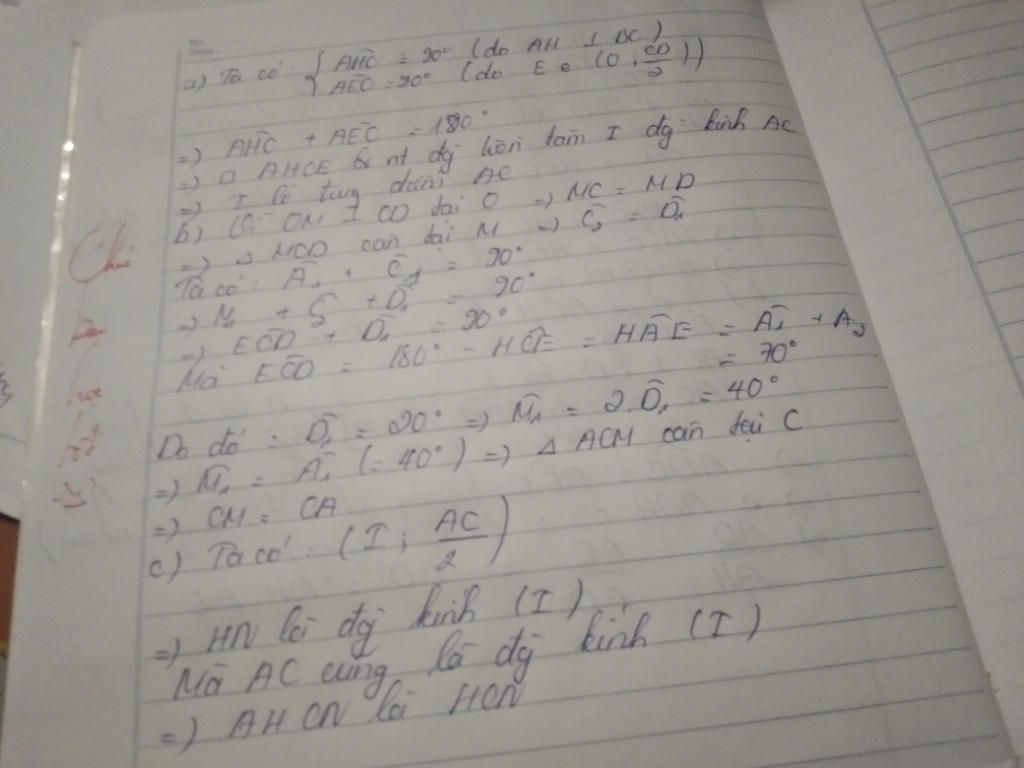 No.
Date
a) Ta có: { AHC = 90° (do AH ⊥ BC)
AEC = 90° (do E ∈ (O; CD/2))
=) AHC + AEC = 180°
=) □ AHCE nt đg tròn tâm I đg kính AC
=) I là trung điểm AC
b) OM ⊥ CD tại O =) MC = MD
=) △ MCD cân tại M =) = D̂₁
Ta có: Â₁ + Ĉ₁ = 90°
=) M̂₁ + + D̂₁ = 90°
=) ECD + D̂₁ = 90°
Mà ECD = 180° - HCE = HAE = Â₁ + A₃
= 70°
Do đó: D̂₁ = 20° =) M̂₁ = 2.D̂₁ = 40°
=) M̂₁ = Â₁ (= 40°) =) △ ACM cân tại C
=) CM = CA
c) Ta có: (I; AC/2)
=) HN là đg kính (I)
Mà AC cũng là đg kính (I)
=) AHCN là HCN